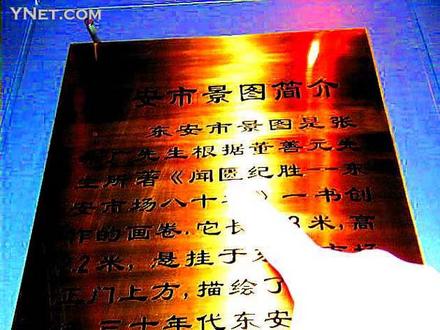 YNet.com
安市景图简介
东安市景图是张
先生根据董善元先
生所著《纪胜—东
安市场八十》一书创
作的画卷.它长3米,高
2米,悬挂于市场
正门上方,描绘了
三十年代东安